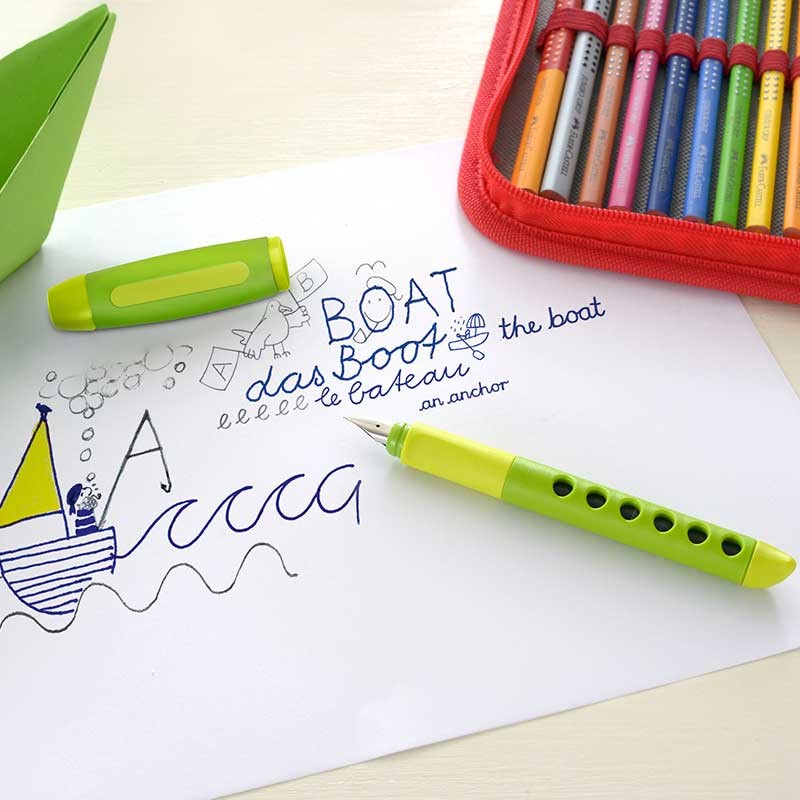 B
BOAT
A
das Boot
the boat
eeeee le bateau
an anchor
A
ccccg
FABER-CASTELL
FABER-CASTELL
FABER-CASTELL
FABER-CASTELL
FABER-CASTELL